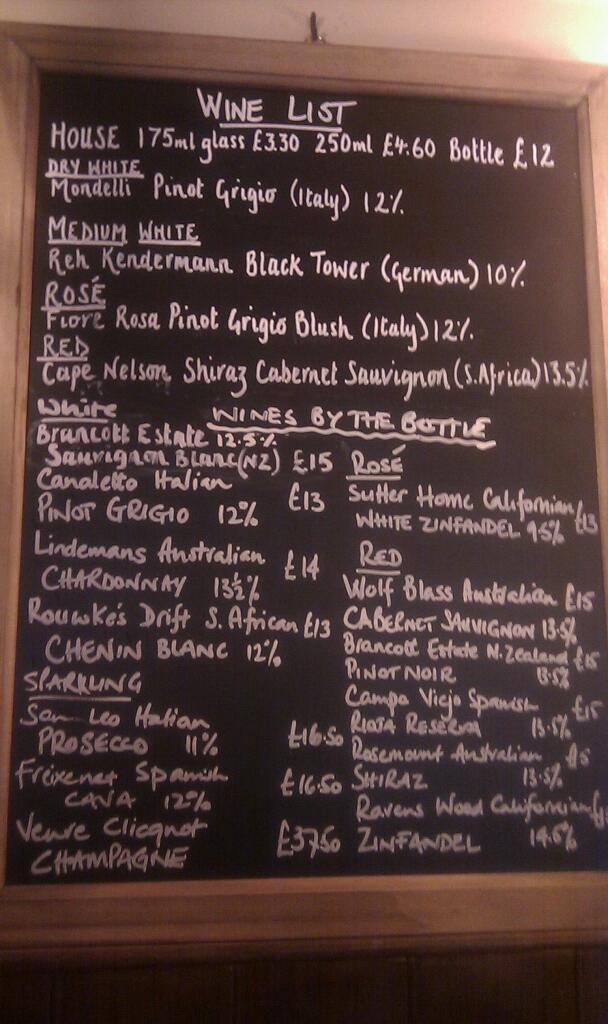 WINE LIST
HOUSE 175ml glass £3.30 250ml £4.60 Bottle £12
DRY WHITE
Mondelli Pinot Grigio (Italy) 12%
MEDIUM WHITE
Reh Kendermann Black Tower (German) 10%
ROSÉ
Fiore Rosa Pinot Grigio Blush (Italy) 12%
RED
Cape Nelson Shiraz Cabernet Sauvignon (S.Africa) 13.5%
WINES BY THE BOTTLE
White
Brancott Estate 12.5%
Sauvignon Blanc (NZ) £15
Canaletto Italian
PINOT GRIGIO 12% £13
Lindemans Australian
CHARDONNAY 13½% £14
Rourke's Drift S. African £13
CHENIN BLANC 12%
SPARKLING
San Leo Italian
PROSECCO 11% £16.50
Freixenet Spanish
CAVA 12% £16.50
Veuve Clicquot
CHAMPAGNE £37.50
Rosé
Sutter Home Californian
WHITE ZINFANDEL 9.5% £13
RED
Wolf Blass Australian £15
CABERNET SAUVIGNON 13.5%
Brancott Estate N.Zealand £15
PINOT NOIR 13.5%
Campo Viejo Spanish £15
RIOJA RESERVA 13.5%
Rosemount Australian
SHIRAZ 13.5%
Ravens Wood Californian
ZINFANDEL 14.5%